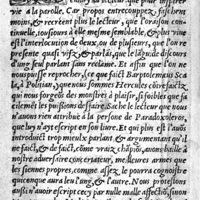 vie à la parolle. Car propos entrecouppez, fussét brut
moins, & recréent plus le lecteur, que l'oraison con-
tinuelle, tousiours à elle mesme semblable, & plus
est l'interlocution de deux, ou de plusieurs, que l'oeuvre
presente quasi vifz, & parlãt, que le liquide discours
d'vng seul parlant sans relasme. Et affin que l'on ne
nous puisse reprocher, (ce que faict Bartolemeus Sca
la, à Politian,) que nous sommes Hercules côtrefaictz
qui nous forgeõs des monstres à plaisir, si foibles que sa
cilemẽt les puissions deffaire. Sache le lecteur que nous
n'auons rien attribué à la persone de Paradoxologe,
que luy n'ayt escript en son liure. Et qui plus est l'auõs
introduict trop mieulx parlant, & argumentant qu'il
ne faict, & faict, côme vrais chãpiõs, auons baille à
nostre aduersaire concertateur, meilleures armes que
les siennes propres, comme assez le pourra cognoistre
quiconque aura leu l'ung, & l'autre. Nous protestons
aussi n'auoir escript cecy par nulle malle affectiõ, sinon